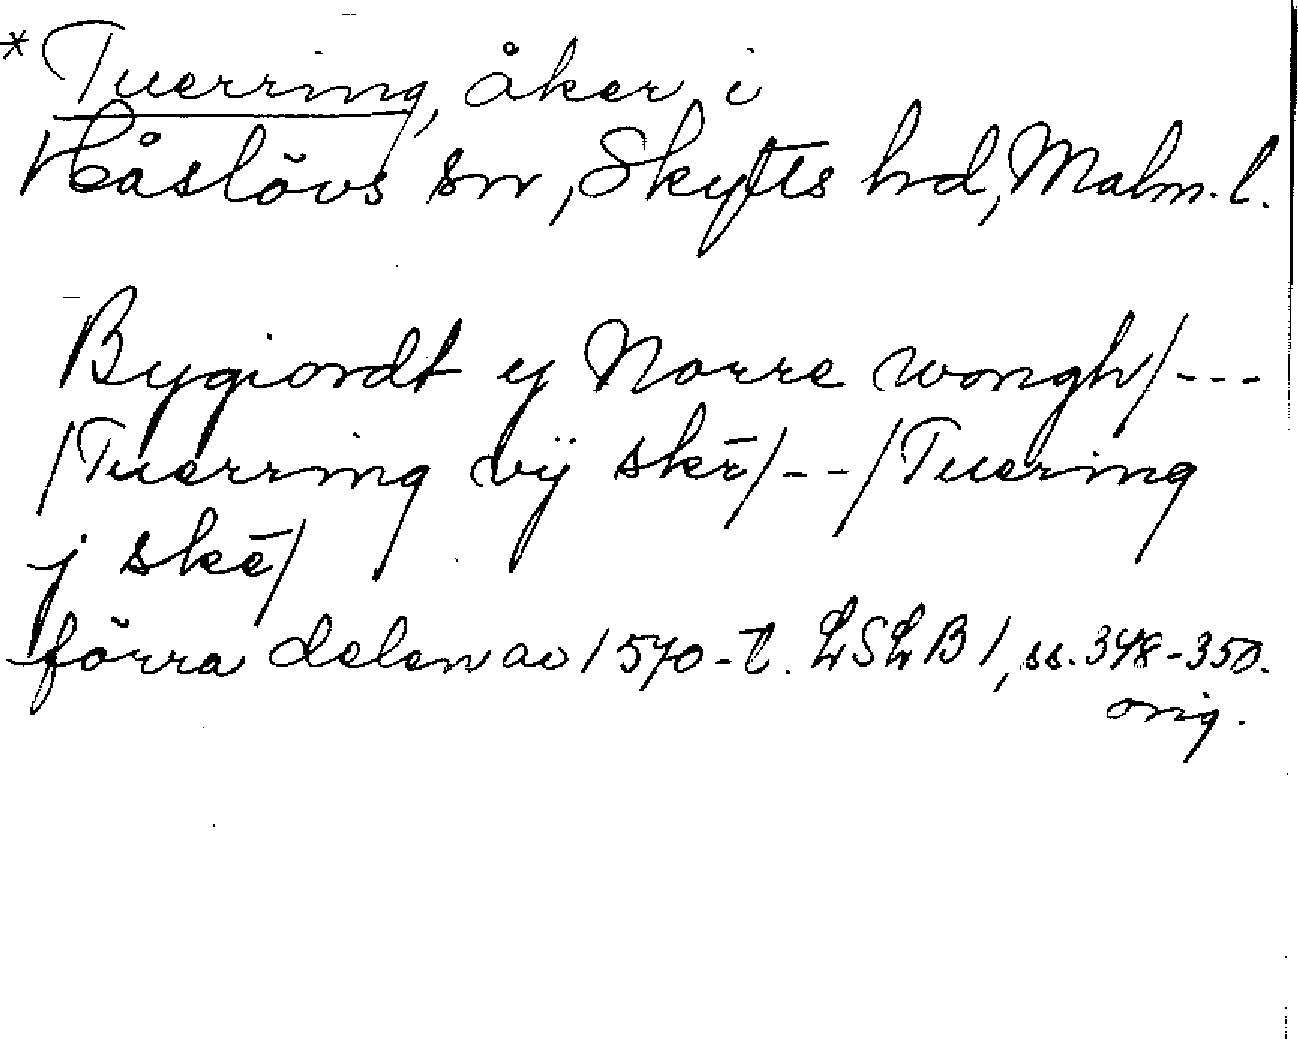 *Tuerring, åker i
Håslövs sn, Skytts hd, Malm. l.
Bygiordt y Norre wongh/---
/Tuerring vij skē/--/Tuering
j skē/
förra delen av 1570-t. LSLB 1, ss. 348-350.
orig.